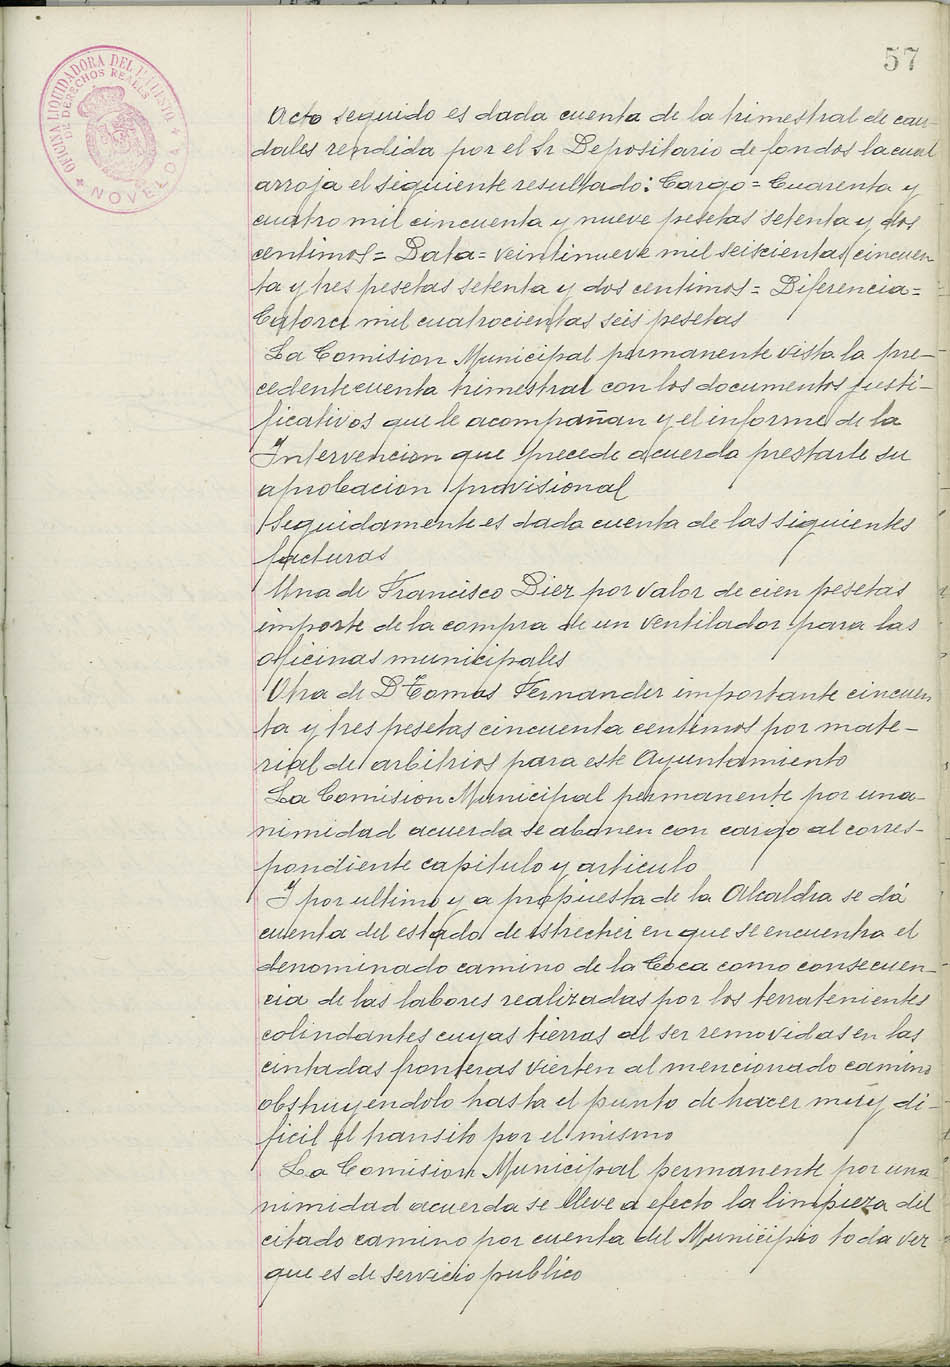 57
OFICINA LIQUIDADORA DEL IMPUESTO
DE DERECHOS REALES
NOVELDA
Acto seguido es dada cuenta de la trimestral de cau-
dales rendida por el Sr Depositario de fondos la cual
arroja el siguiente resultado: Cargo = Cuarenta y
cuatro mil cincuenta y nueve pesetas setenta y dos
centimos = Data = veintinueve mil seiscientas cincuen
ta y tres pesetas setenta y dos centimos = Diferencia =
Catorce mil cuatrocientas seis pesetas
La Comision Municipal permanente vista la pre-
cedente cuenta trimestral con los documentos justi-
ficativos que le acompañan y el informe de la
Intervencion que precede acuerda prestarle su
aprobacion provisional
Seguidamente es dada cuenta de las siguientes
facturas
Una de Francisco Diez por valor de cien pesetas
importe de la compra de un ventilador para las
oficinas municipales
Otra de D Tomas Fernandez importante cincuen
ta y tres pesetas cincuenta centimos por mate-
rial de arbitrios para este Ayuntamiento
La Comision Municipal permanente por una-
nimidad acuerda se abonen con cargo al corres-
pondiente capitulo y articulo
Y por ultimo y a propuesta de la Alcaldia se dá
cuenta del estado de estrechez en que se encuentra el
denominado camino de la Coca como consecuen-
cia de las labores realizadas por los terratenientes
colindantes cuyas tierras al ser removidas en las
cintadas fronteras vierten al mencionado camino
obstruyendolo hasta el punto de hacer muy di-
ficil el transito por el mismo
La Comision Municipal permanente por una
nimidad acuerda se lleve a efecto la limpieza del
citado camino por cuenta del Municipio toda vez
que es de servicio publico